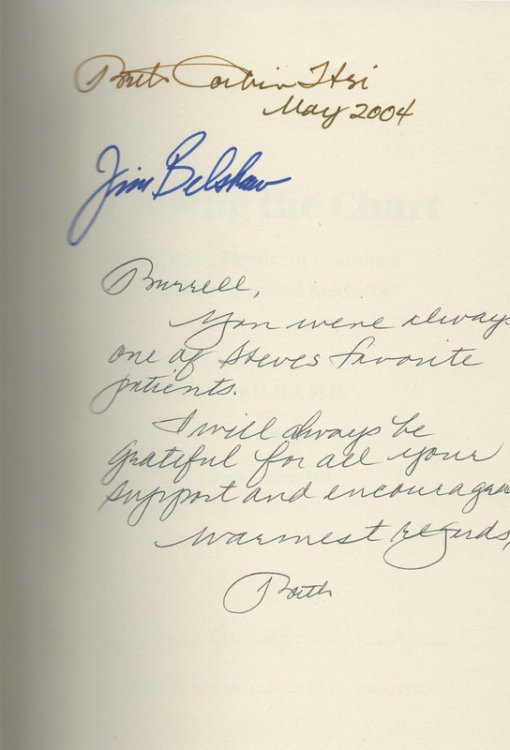 Beth Corbin Hsi
May 2004
Jim Belshaw
the Chart
Burrell,
You were always
one of Steves favorite
patients.
I will always be
grateful for all your
support and
warmest regards,
Beth